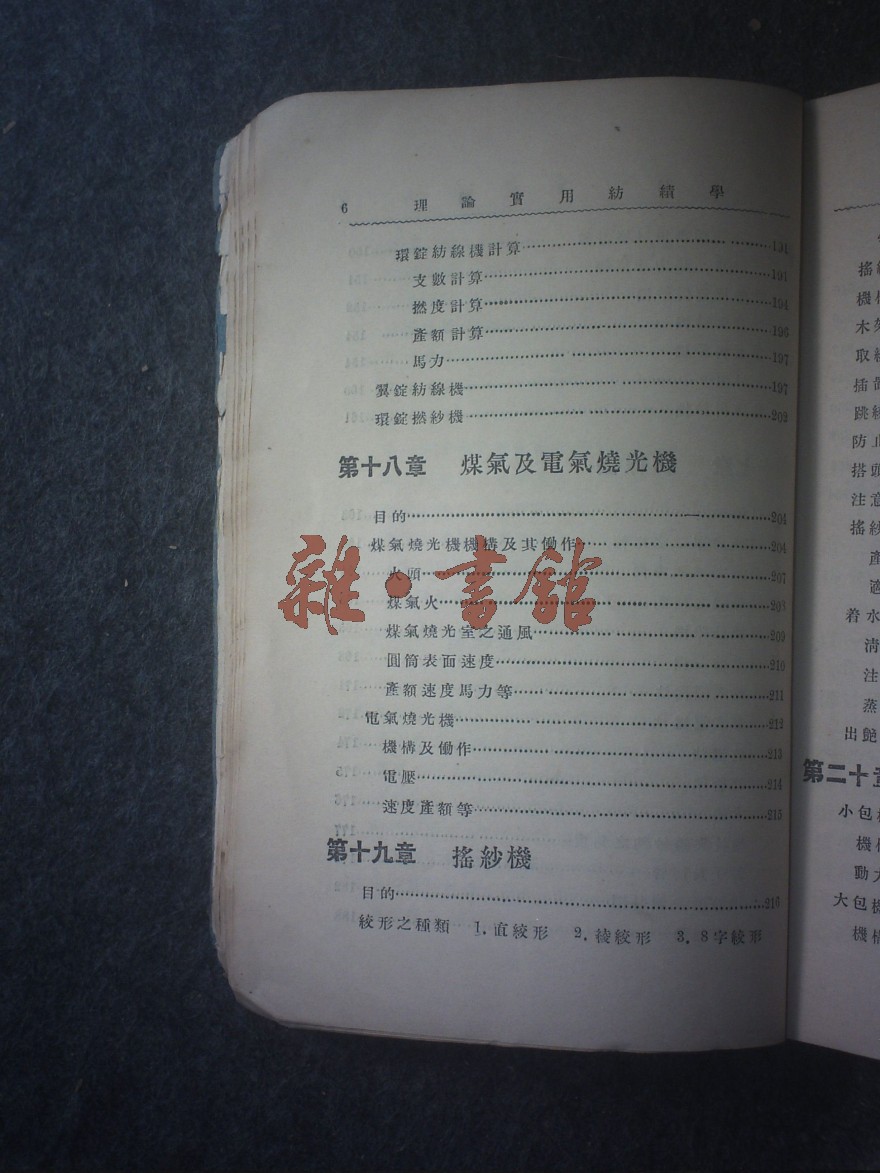 6 理論實用紡績學
環錠紡線機計算……191
支數計算……191
撚度計算……194
產額計算……196
馬力……197
翼錠紡線機……197
環錠撚紗機……202
第十八章 煤氣及電氣燒光機
目的……204
煤氣燒光機機構及其働作……204
火頭……207
煤氣火……208
煤氣燒光室之通風……209
圓筒表面速度……210
產額速度馬力等……211
電氣燒光機……212
機構及働作……213
電壓……214
速度產額等……215
第十九章 搖紗機
目的……216
絞形之種類 1.直絞形 2.綾絞形 3.8字絞形
雜·書館
搖
機
木
取
插
跳
防止
搭頭
注意
搖紗
產
適
着水
清
注
蒸
出
第二十
小包
機
動
大包機
機